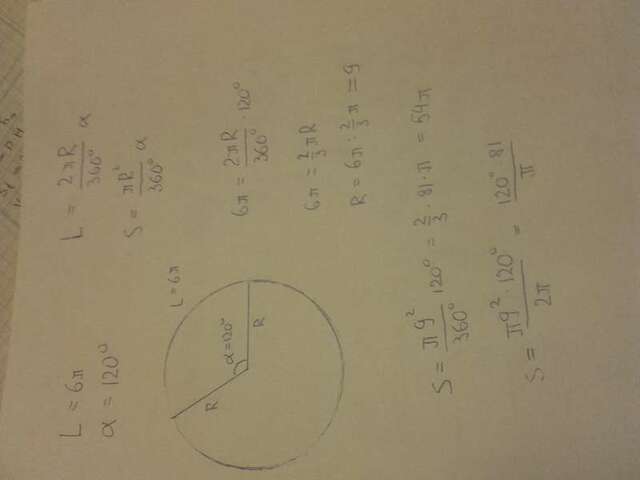 L = 6π
α = 120°
L = 2πR/360° α
S = πR²/360° α
L = 6π
α = 120°
R
R
6π = 2πR/360° · 120°
6π = 2/3 πR
R = 6π : 2/3 π = 9
S = π9²/360° 120° = 2/3 · 81 · π = 54π
S = π9² · 120°/2π = 120° · 81/π